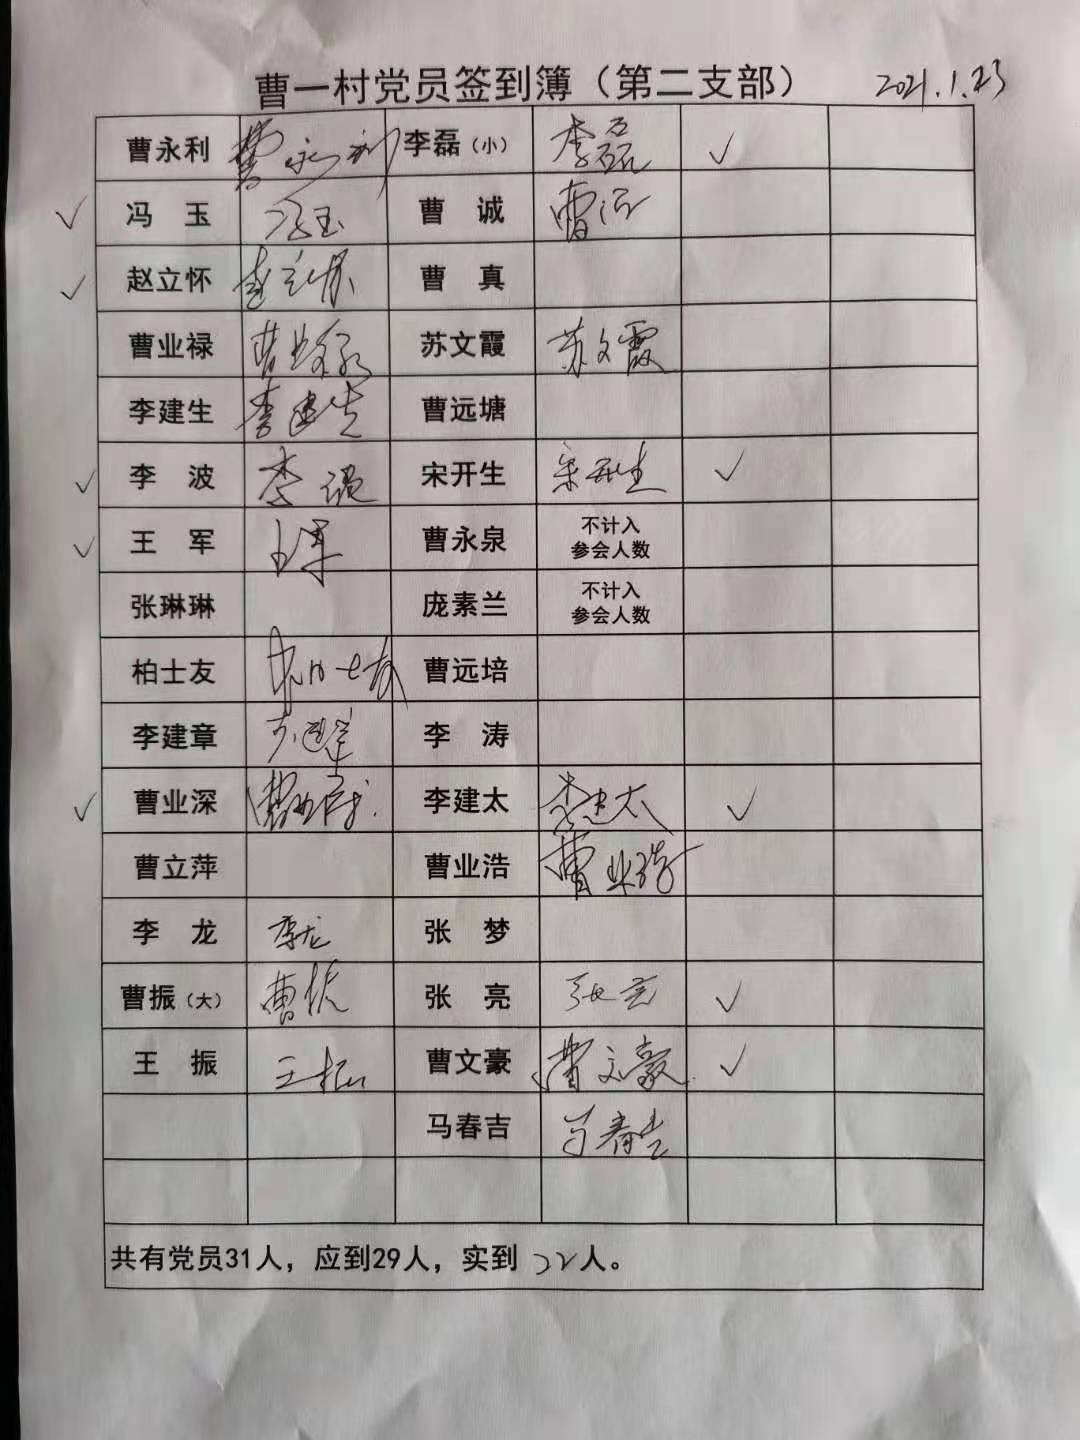 曹一村党员签到簿（第二支部） 2021.1.23
曹永利 曹永利 李磊（小） 李磊 ✓
✓ 冯 玉 冯玉 曹 诚 曹诚
✓ 赵立怀 赵立怀 曹 真
曹业禄 曹业禄 苏文霞 苏文霞
李建生 李建生 曹远塘
✓ 李 波 李波 宋开生 宋开生 ✓
✓ 王 军 王军 曹永泉 不计入
参会人数
张琳琳 庞素兰 不计入
参会人数
柏士友 柏士友 曹远培
李建章 李建章 李 涛
✓ 曹业深 李建太 李建太 ✓
曹立萍 曹业浩 曹业浩
李 龙 李龙 张 梦
曹振（大） 曹振 张 亮 张亮 ✓
王 振 王振 曹文豪 曹文豪 ✓
马春吉 马春吉
共有党员31人，应到29人，实到 22人。